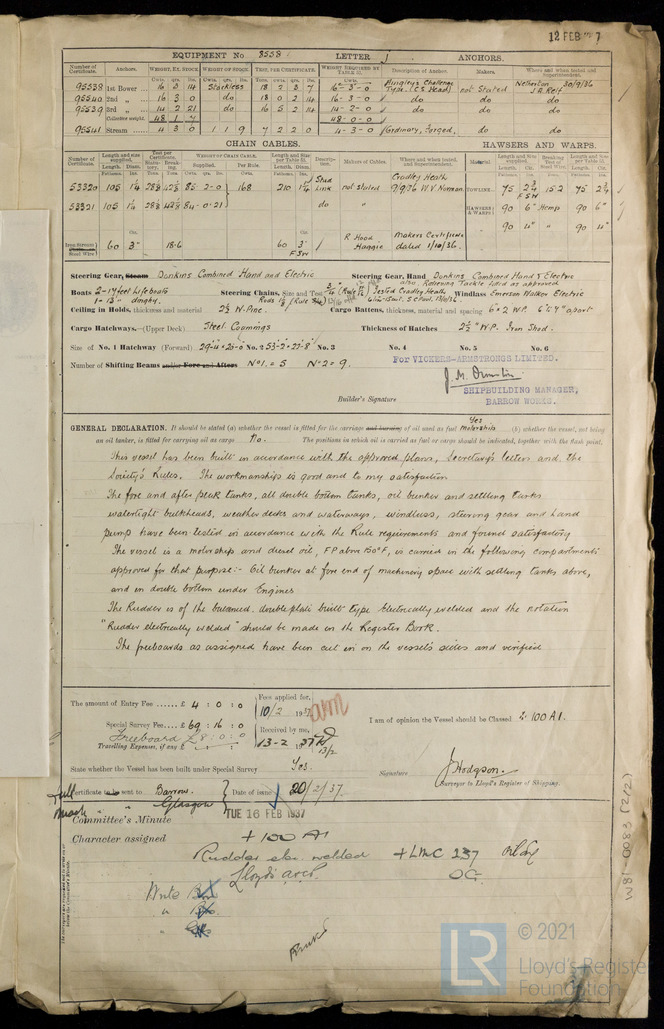 12 FEB
EQUIPMENT No 8558 LETTER j ANCHORS.
Number of Certificate. Anchors. WEIGHT, EX. STOCK WEIGHT OF STOCK. TEST, PER CERTIFICATE. WEIGHT REQUIRED BY TABLE 31. Description of Anchors. Makers. Where and when tested and Superintendent.
95538 1st Bower 16 3 14 Stockless 18 2 3 7 16-3-0 Hingley's Challenge Type. (C S Head) not Stated Netherton 30/9/36 J.A. Relf
95540 2nd " 16 3 0 do 18 0 2 14 16-3-0 do do do
95539 3rd " 14 2 21 do 16 5 2 14 14-2-0 do do do
Collective weight. 48 1 7 48-0-0
95541 Stream 4 3 0 1 1 9 7 2 2 0 4-3-0 Ordinary, Forged. do do
CHAIN CABLES. HAWSERS AND WARPS.
53320 105 1¼ 28⅛ 42⅛ 85-2-0 168 210 1¼ Stud Link not stated Cradley Heath 9/9/36 W.V Norman. TOWLINE 75 2¾ F S W 15·2 75 2¾
53321 105 1¼ 28⅛ 42⅛ 84-0-21 do " HAWSERS & WARPS 90 6" Hemp 90 6"
Iron Stream or Steel Wire 60 3" 18·6 60 3" F S W R Hood Haggie Makers Certificate dated 1/10/36. " 90 4" " 90 4"
Steering Gear, Steam Donkins Combined Hand and Electric Steering Gear, Hand Donkins Combined Hand & Electric
also Relieving Tackle fitted as approved
Boats 2-17 feet Lifeboats Steering Chains, Size and Test Tested Cradley Heath, Windlass Emerson Walker Electric
1-13' dinghy.
Ceiling in Holds, thickness and material 2½ W. Pine. Cargo Battens, thickness, material and spacing 6 × 2 W.P. apart
Cargo Hatchways.—(Upper Deck) Steel Coamings Thickness of Hatches 2½" W.P. Iron Shod.
Size of No. 1 Hatchway (Forward) 29-4 × 20-0 No. 2 53-2 × 27-8 No. 3 No. 4 No. 5 No. 6
Number of Shifting Beams and/or Fore and Afters No 1. = 5 No 2 = 9.
FOR VICKERS-ARMSTRONGS LIMITED.
SHIPBUILDING MANAGER,
BARROW WORKS.
Builder's Signature
GENERAL DECLARATION. It should be stated (a) whether the vessel is fitted for the carriage and burning of oil used as fuel Yes motorship (b) whether the vessel, not being
an oil tanker, is fitted for carrying oil as cargo No. The positions in which oil is carried as fuel or cargo should be indicated, together with the flash point.
This vessel has been built in accordance with the approved plans, Secretary's letters and the
Society's Rules. The workmanship is good and to my satisfaction
The fore and after peak tanks, all double bottom tanks, oil bunker and settling tanks
watertight bulkheads, weather decks and waterways, windlass, steering gear and hand
pump have been tested in accordance with the Rule requirements and found satisfactory
The vessel is a motorship and diesel oil, F.P above 150°F, is carried in the following compartments
approved for that purpose:- Oil bunker at fore end of machinery space with settling tanks above,
and in double bottom under Engines
The Rudder is of the balanced double plate built type electrically welded and the notation
"Rudder electrically welded" should be made in the Register Book.
The freeboards as assigned have been cut in on the vessel's sides and verified
The amount of Entry Fee £ 4 : 0 : 0 Fees applied for, 10/2 1937
Special Survey Fee £ 69 : 16 : 0
Freeboard £8 : 0 : 0
Travelling Expenses, if any £
Received by me, 13-2 1937 13/2
I am of opinion the Vessel should be Classed 100 A1.
State whether the Vessel has been built under Special Survey Yes.
Signature J Hodgson.
Surveyor to Lloyd's Register of Shipping.
Certificate to be sent to Barrow Date of issue 20/2/37.
" " Glasgow
Committee's Minute TUE 16 FEB 1937
Character assigned + 100 A1
Rudder elec. welded + LMC 2.37
Lloyd's A&CP. OG
Write
W81-0083 (2/2)
LR © 2021
Lloyd's Register
Foundation